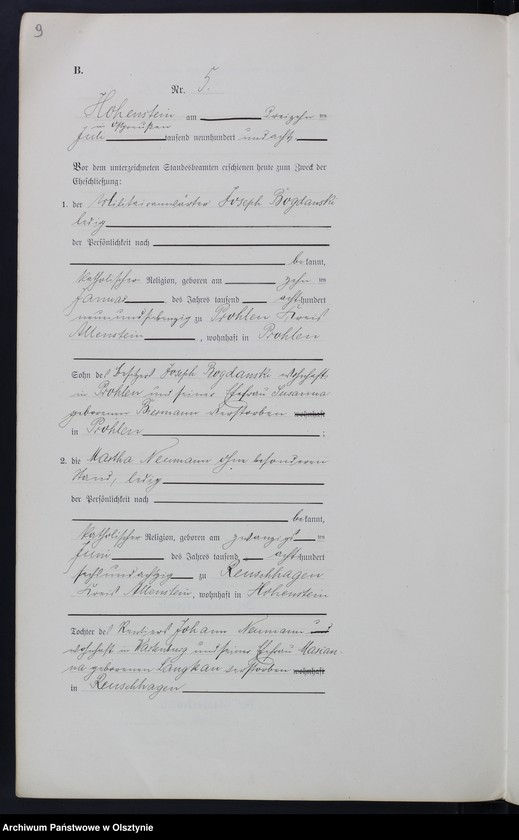 9
B.
Nr. 5.
Hohenstein am dreizehnten
in Ostpreußen
Juli tausend neunhundert und acht
Vor dem unterzeichneten Standesbeamten erschienen heute zum Zweck der
Eheschließung:
1. der Militäranwärter Joseph Bogdanski
ledig
der Persönlichkeit nach
bekannt,
katholischer Religion, geboren am zehnten
Januar des Jahres tausend achthundert
neunundsiebenzig zu Prohlen Kreis
Allenstein, wohnhaft in Prohlen
Sohn des Besitzers Joseph Bogdanski wohnhaft
in Prohlen und seiner Ehefrau Susanna
geborenen verstorben wohnhaft
in Prohlen;
2. die Martha Neumann ohne besonderen
Stand, ledig
der Persönlichkeit nach
bekannt,
katholischer Religion, geboren am zwanzigsten
Juni des Jahres tausend achthundert
sechsundachtzig zu Reuschhagen
Kreis Allenstein, wohnhaft in Hohenstein
Tochter des Rentiers Johann Neumann
wohnhaft in Wartenburg und seiner Ehefrau Marian-
na geborenen Langkau verstorben wohnhaft
in Reuschhagen
Archiwum Państwowe w Olsztynie